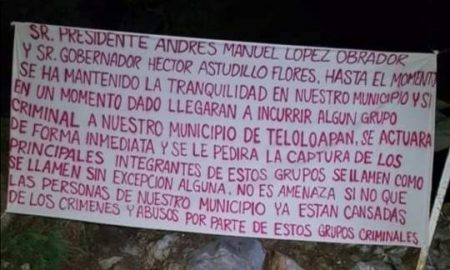 SR. PRESIDENTE ANDRES MANUEL LOPEZ OBRADOR
Y SR. GOBERNADOR HECTOR ASTUDILLO FLORES, HASTA EL MOMENTO
SE HA MANTENIDO LA TRANQUILIDAD EN NUESTRO MUNICIPIO Y SI
EN UN MOMENTO DADO LLEGARAN A INCURRIR ALGUN GRUPO
CRIMINAL A NUESTRO MUNICIPIO DE TELOLOAPAN, SE ACTUARA
DE FORMA INMEDIATA Y SE LE PEDIRA LA CAPTURA DE LOS
PRINCIPALES INTEGRANTES DE ESTOS GRUPOS SE LLAMEN COMO
SE LLAMEN SIN EXCEPCION ALGUNA, NO ES AMENAZA SI NO QUE
LAS PERSONAS DE NUESTRO MUNICIPIO YA ESTAN CANSADAS
DE LOS CRIMENES Y ABUSOS POR PARTE DE ESTOS GRUPOS CRIMINALES